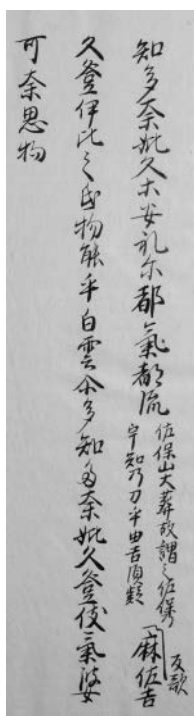 知多奈妣久等安礼尓都氣都流
佐保山火葬故謂之佐保乃
宇知乃刀乎由吉須疑
反歌
麻佐吉
久登伊比之氐物能乎白雲尓多知多奈妣久登伎氣婆
可奈思物